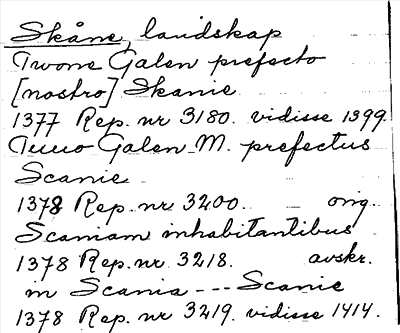 Skåne, landskap
Twone Galen prefecto
[nostro] Skanie
1377 Rep. nr 3180. vidisse 1399.
Tuuo Galen M. prefectus
Scanie
1378 Rep. nr 3200. orig.
Scaniam inhabitantibus
1378 Rep. nr 3218. avskr.
in Scania --- Scanie
1378 Rep. nr 3219. vidisse 1414.